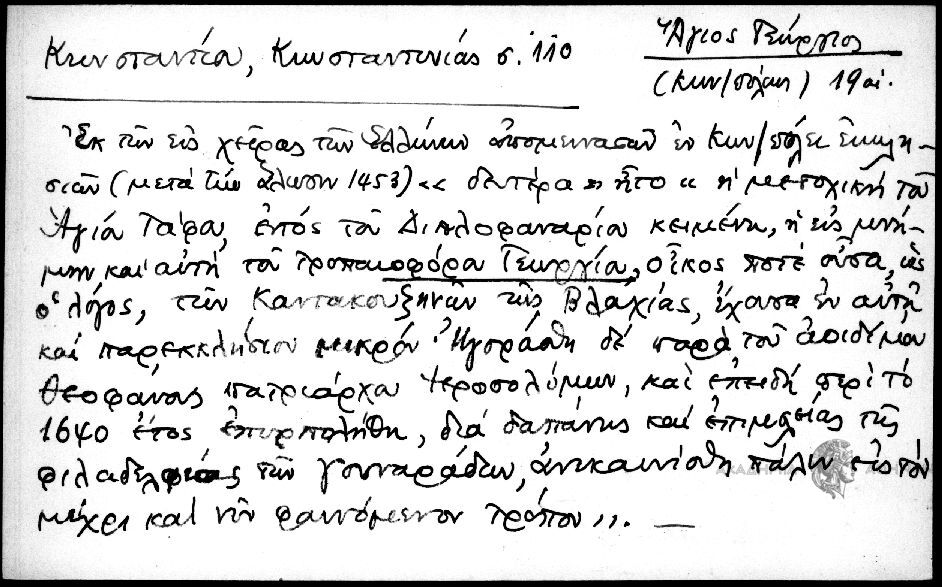 Κωνσταντίου, Κωνσταντινιάς σ. 110
Ἅγιος Γεώργιος
(Κων/πόλεως) 19 αἰ.
Ἐκ τῶν εἰς χεῖρας τῶν Ἑλλήνων ἀπομεινασῶν ἐν Κων/πόλει ἐκκλη-
σιῶν (μετὰ τὴν ἅλωσιν 1453) «δευτέρα» ἦτο «ἡ μετοχικὴ τοῦ
Ἁγίου Τάφου, ἐντὸς τοῦ Διπλοφαναρίου κειμένη, ἡ εἰς μνή-
μην καὶ αὐτὴ τοῦ Τροπαιοφόρου Γεωργίου, οἶκος ποτὲ οὖσα, ὡς
ὁ λόγος, τῶν Καντακουζηνῶν τῆς Βλαχίας, ἔχουσα ἐν αὐτῇ
καὶ παρεκκλήσιον μικρόν. Ἠγοράσθη δὲ παρὰ τοῦ ἀοιδίμου
Θεοφάνους πατριάρχου Ἱεροσολύμων, καὶ ἐπειδὴ περὶ τὸ
1640 ἔτος ἐπυρπολήθη, διὰ δαπάνης καὶ ἐπιμελείας τῆς
φιλαδελφείας τῶν γουναράδων, ἀνεκαινίσθη πάλιν εἰς τὸν
μέχρι καὶ νῦν φαινόμενον τρόπον».